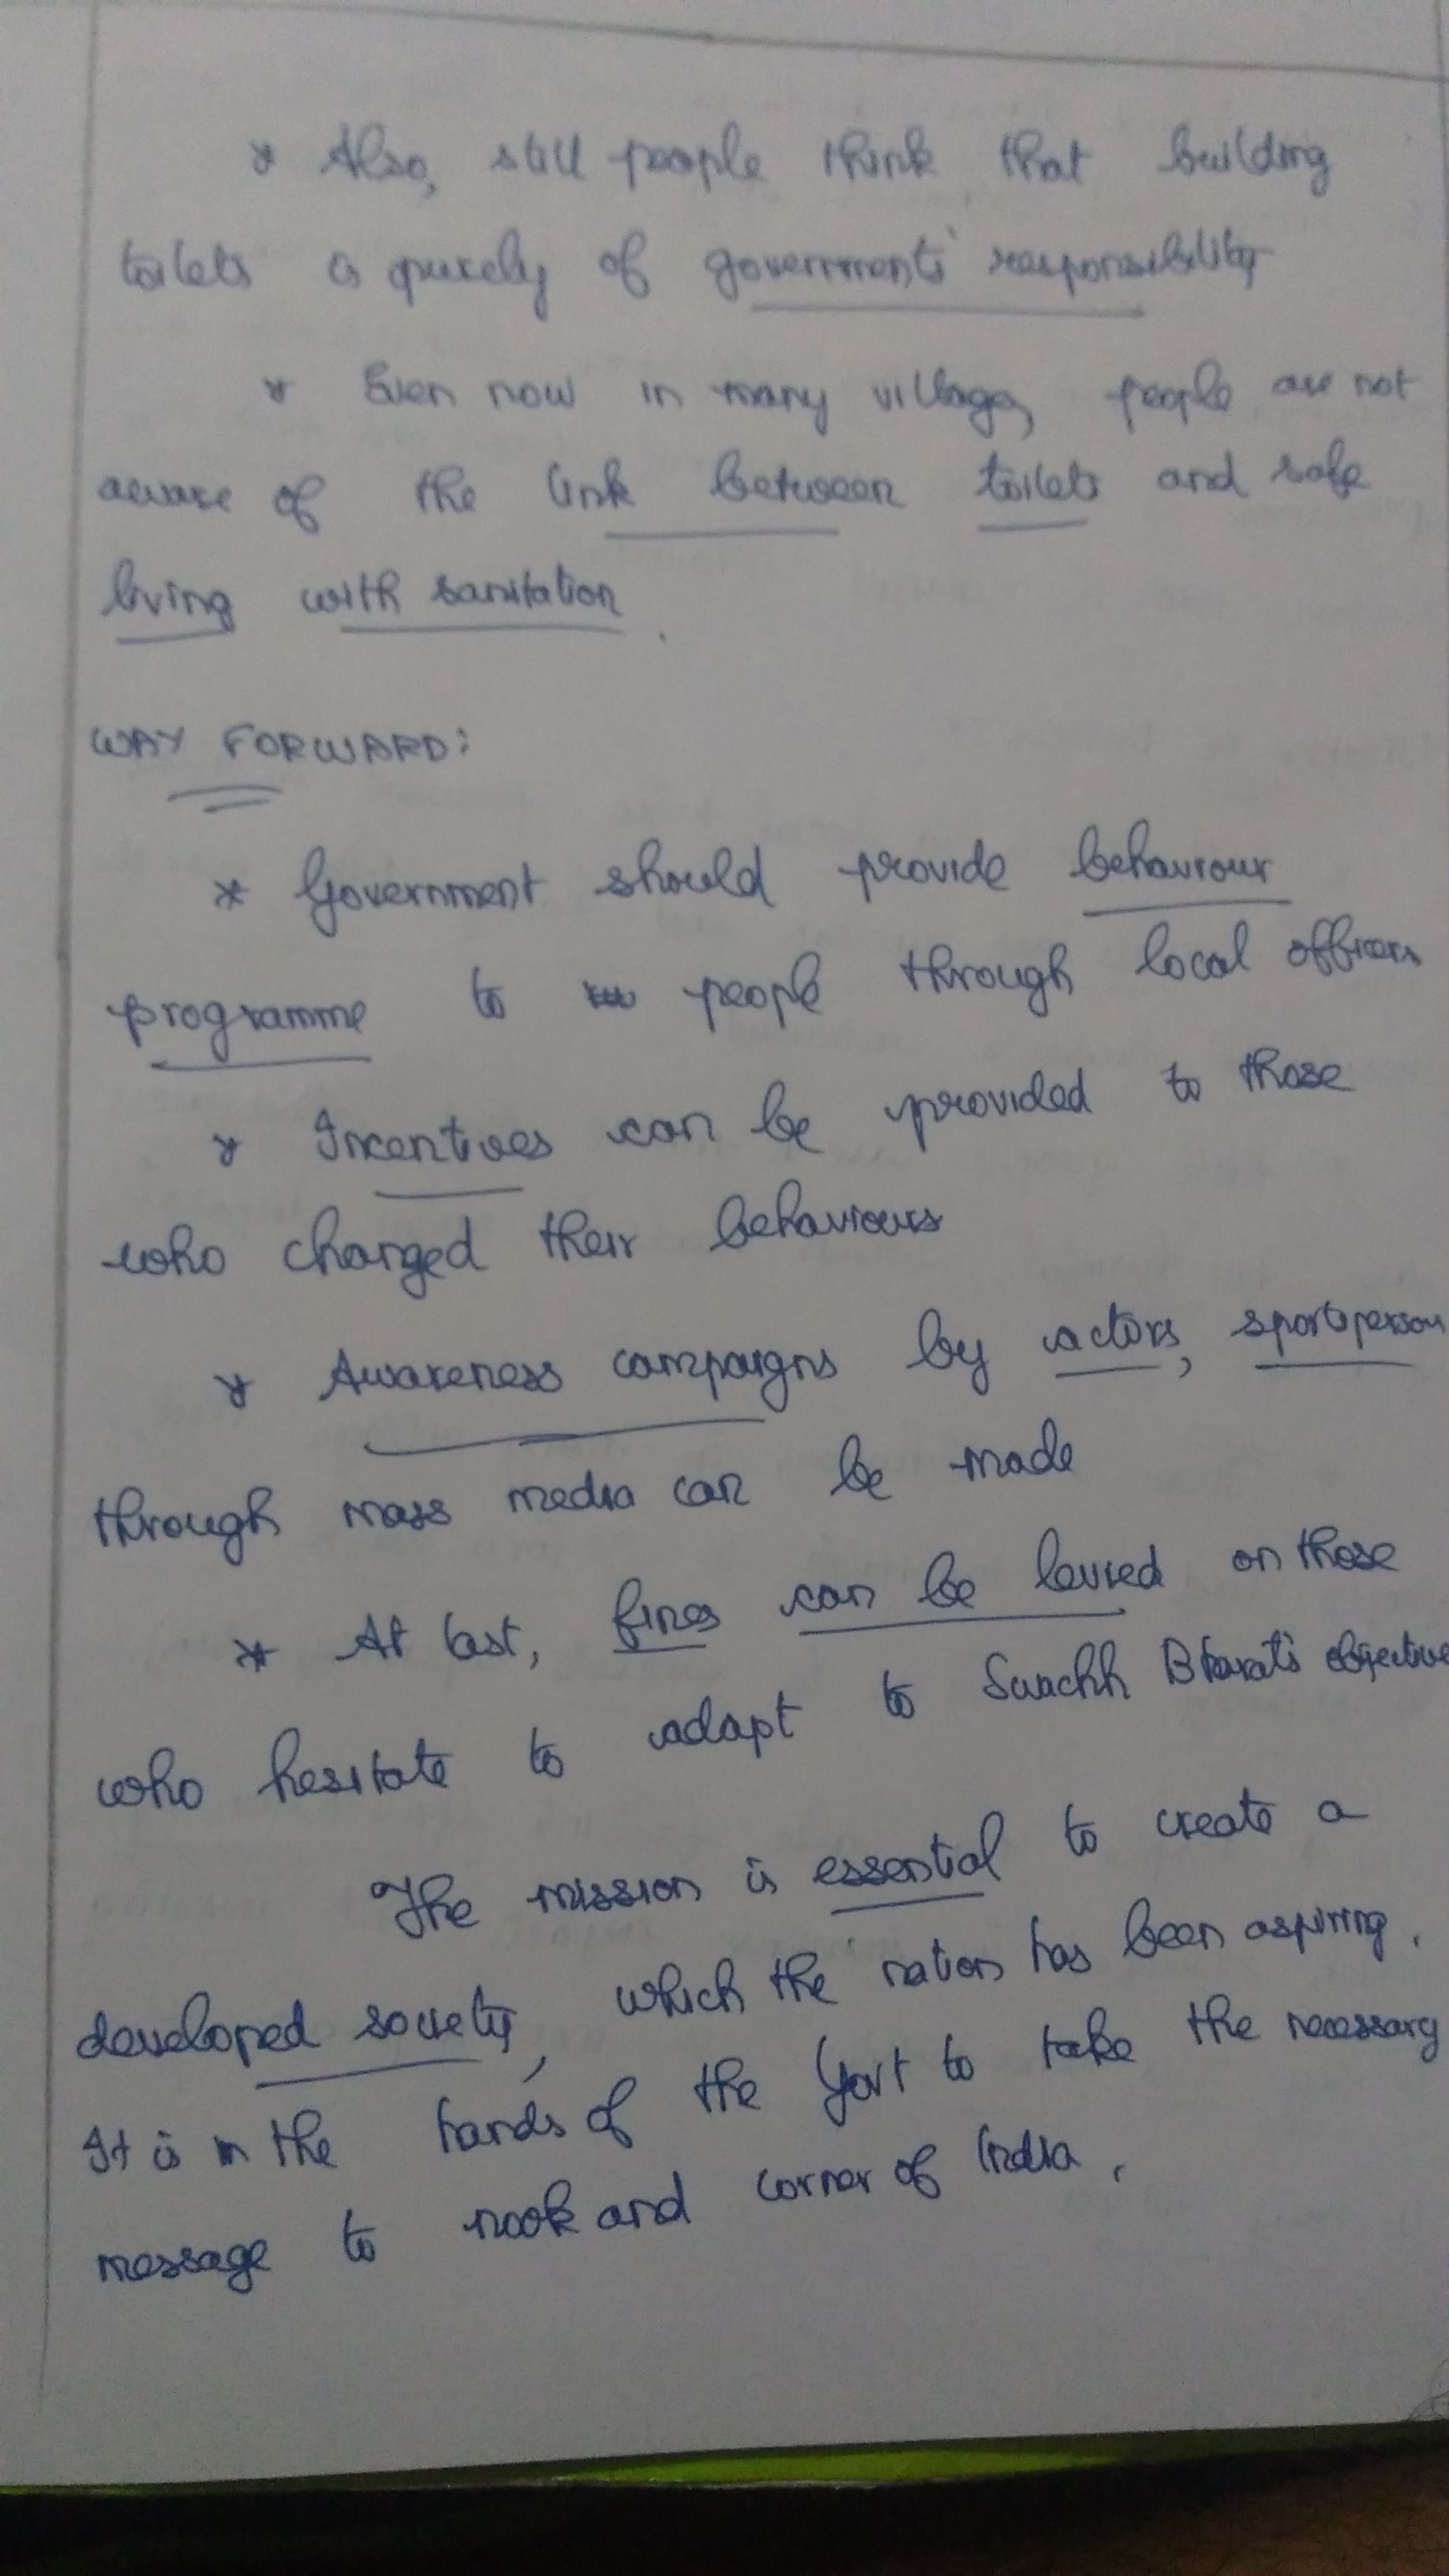 * Also, still people think that building
toilets is purely of governments' responsibility
* Even now in many villages, people are not
aware of the link between toilets and safe
living with sanitation.
WAY FORWARD:
* Government should provide behaviour
programme to people through local officers
* Incentives can be provided to those
who changed their behaviours
* Awareness campaigns by actors, sportsperson
through mass media can be made
* At last, fines can be levied on those
who hesitate to adapt to Swachh Bharat's objective
The mission is essential to create a
developed society, which the nation has been aspiring.
It is in the hands of the Govt to take the necessary
message to nook and corner of India.